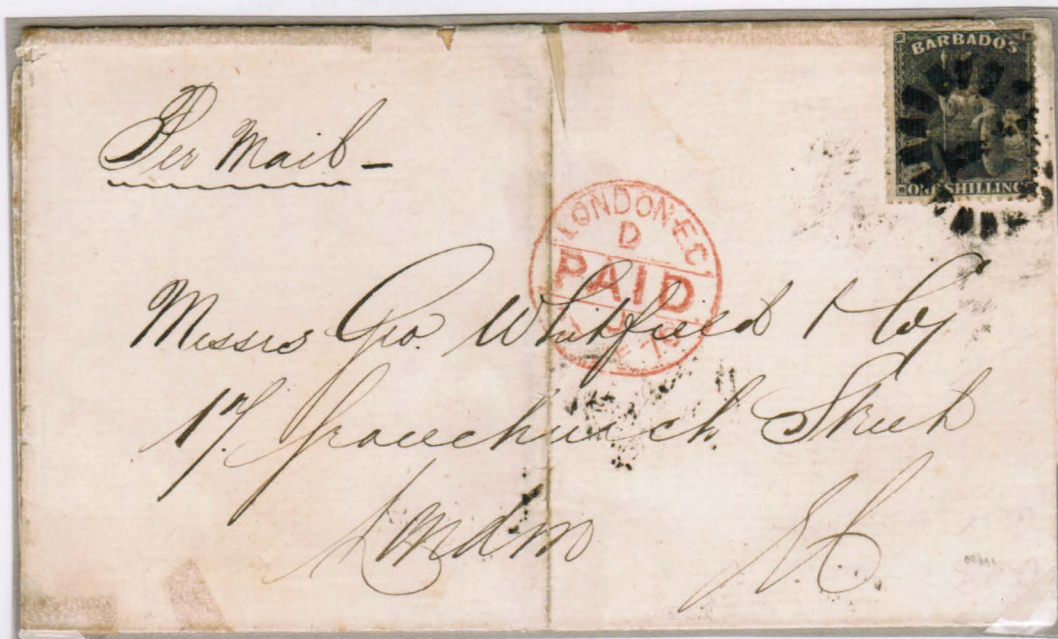 BARBADOS
ONE SHILLING
Per Mail -
LONDON·E.C
D
PAID
Messrs Geo. Whitfield & Coy
17 Gracechurch Street
London E.C.